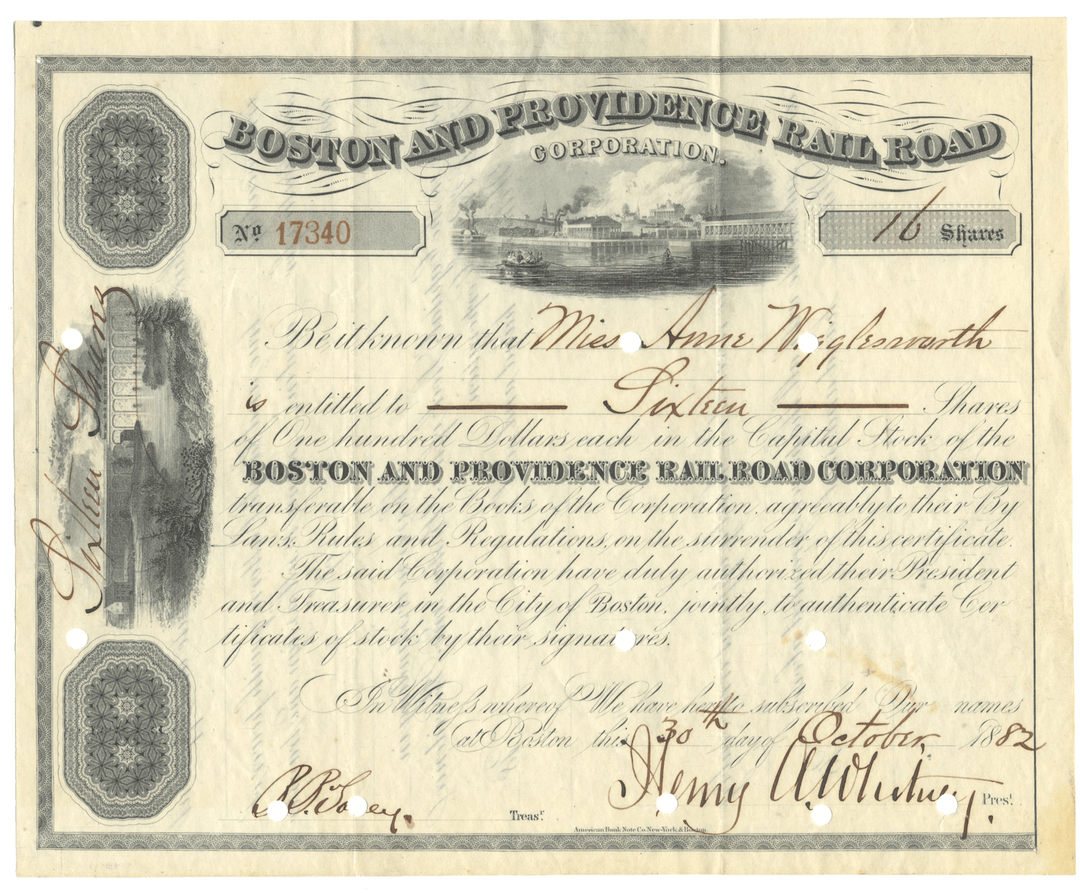 BOSTON AND PROVIDENCE RAIL ROAD
CORPORATION.
No 17340
16 Shares
Sixteen Shares
Be it known that Miss Anne Wigglesworth
is entitled to Sixteen Shares
of One hundred Dollars each in the Capital Stock of the
BOSTON AND PROVIDENCE RAIL ROAD CORPORATION
transferable on the Books of the Corporation, agreeably to their By
Laws, Rules and Regulations, on the surrender of this certificate.
The said Corporation have duly authorized their President
and Treasurer in the City of Boston, jointly, to authenticate Cer
tificates of stock by their signatures.
In Witness whereof We have hereto subscribed Our names
at Boston this 30th day of October, 1882
Henry A. Whitney, Prest.
Treasr
American Bank Note Co. New-York & Boston